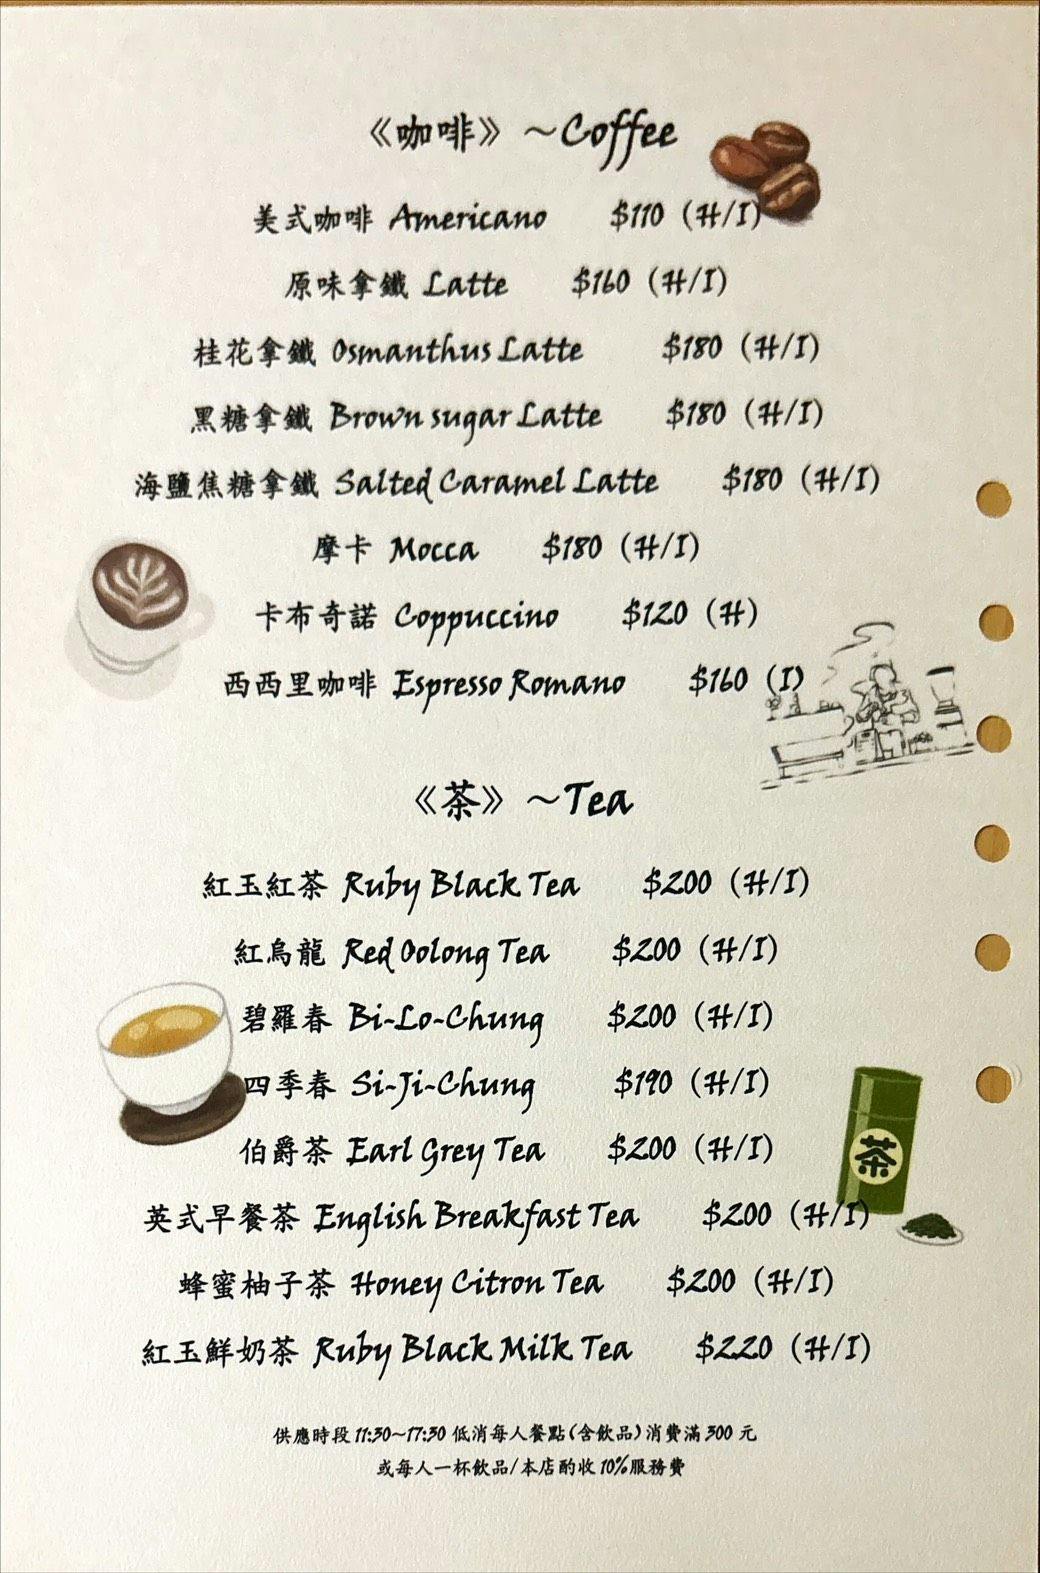 《咖啡》~Coffee
美式咖啡 Americano $110 (H/I)
原味拿鐵 Latte $160 (H/I)
桂花拿鐵 Osmanthus Latte $180 (H/I)
黑糖拿鐵 Brown sugar Latte $180 (H/I)
海鹽焦糖拿鐵 Salted Caramel Latte $180 (H/I)
摩卡 Mocca $180 (H/I)
卡布奇諾 Coppuccino $120 (H)
西西里咖啡 Espresso Romano $160 (I)
《茶》~Tea
紅玉紅茶 Ruby Black Tea $200 (H/I)
紅烏龍 Red Oolong Tea $200 (H/I)
碧羅春 Bi-Lo-Chung $200 (H/I)
四季春 Si-Ji-Chung $190 (H/I)
伯爵茶 Earl Grey Tea $200 (H/I)
茶
英式早餐茶 English Breakfast Tea $200 (H/I)
蜂蜜柚子茶 Honey Citron Tea $200 (H/I)
紅玉鮮奶茶 Ruby Black Milk Tea $220 (H/I)
供應時段 11:30~17:30 低消每人餐點(含飲品)消費滿 300 元
或每人一杯飲品/本店酌收 10%服務費